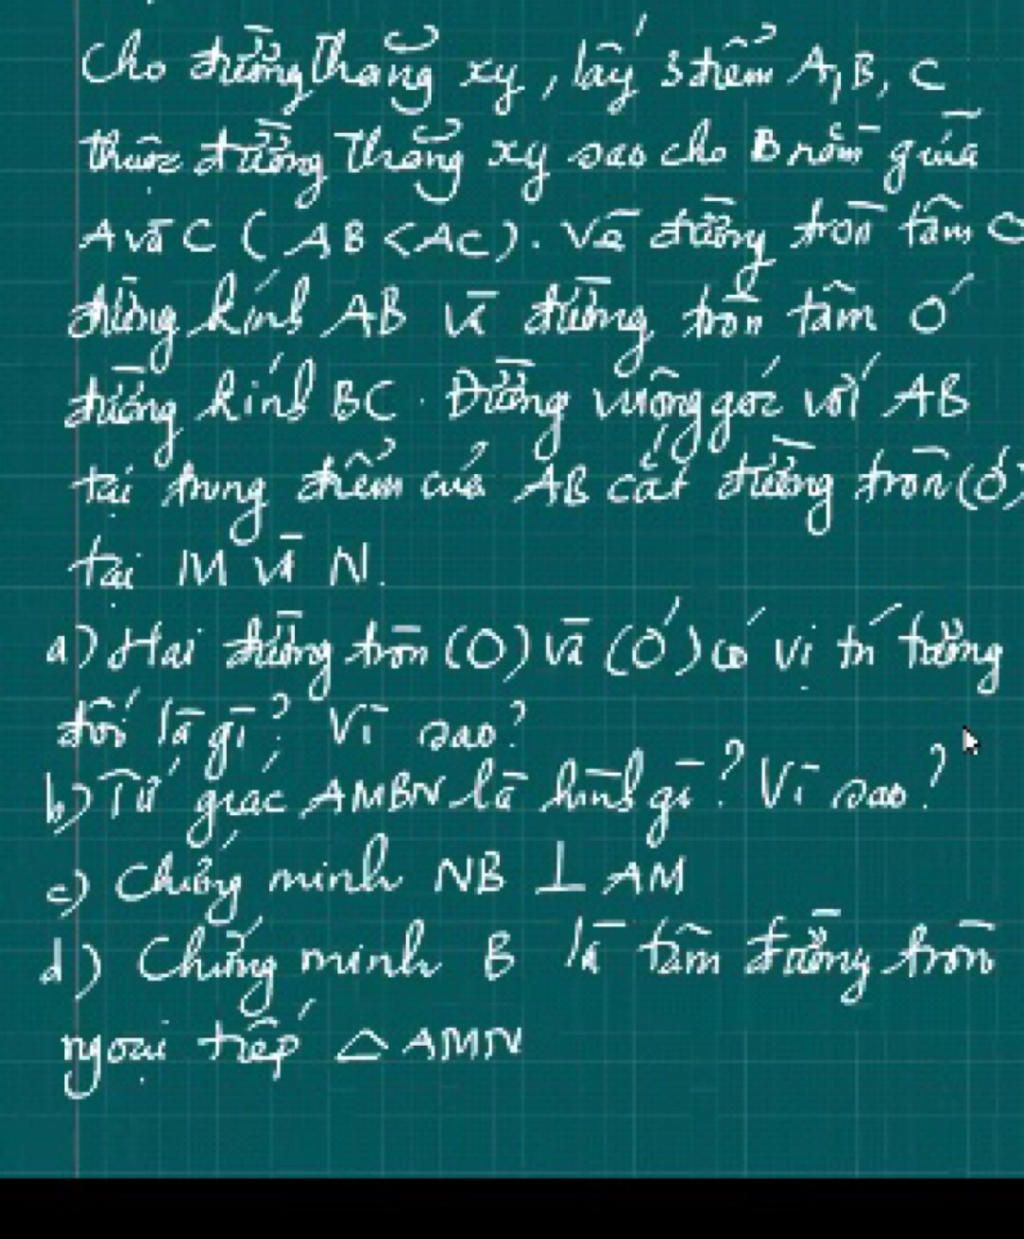 Cho đường thẳng xy, lấy 3 điểm A, B, C
thuộc đường thẳng xy sao cho B nằm giữa
A và C (AB < AC). Vẽ đường tròn tâm O
đường kính AB và đường tròn tâm O'
đường kính BC. Đường vuông góc với AB
tại trung điểm của AB cắt đường tròn (O')
tại M và N.
a) Hai đường tròn (O) và (O') có vị trí tương
đối là gì? Vì sao?
b) Tứ giác AMBN là hình gì? Vì sao?
c) Chứng minh NB ⊥ AM
d) Chứng minh B là tâm đường tròn
ngoại tiếp △ AMN